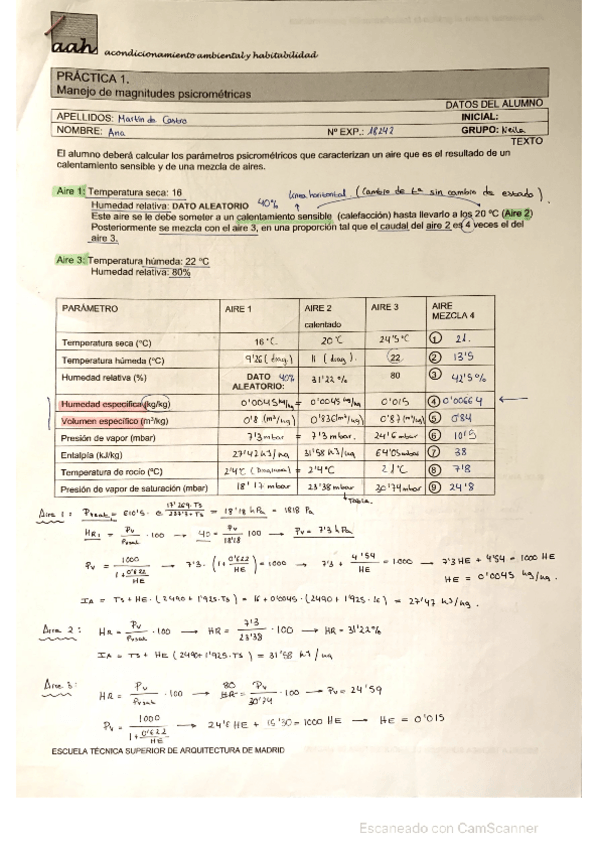 aah acondicionamiento ambiental y habitabilidad
PRÁCTICA 1.
Manejo de magnitudes psicrométricas
DATOS DEL ALUMNO
APELLIDOS: Martín de Castro INICIAL:
NOMBRE: Ana Nº EXP.: 18242 GRUPO: Keila
TEXTO
El alumno deberá calcular los parámetros psicrométricos que caracterizan un aire que es el resultado de un
calentamiento sensible y de una mezcla de aires.
Aire 1: Temperatura seca: 16 línea horizontal (Cambio de tª sin cambio de estado).
Humedad relativa: DATO ALEATORIO 40%
Este aire se le debe someter a un calentamiento sensible (calefacción) hasta llevarlo a los 20 ºC (Aire 2)
Posteriormente se mezcla con el aire 3, en una proporción tal que el caudal del aire 2 es 4 veces el del
aire 3.
Aire 3: Temperatura húmeda: 22 ºC
Humedad relativa: 80%
PARÁMETRO AIRE 1 AIRE 2 calentado AIRE 3 AIRE MEZCLA 4
Temperatura seca (ºC) 16ºC 20ºC 24'5ºC 1 21.
Temperatura húmeda (ºC) 9'26 (diag.) 11 (diag.) 22 2 13'5
Humedad relativa (%) DATO ALEATORIO: 40% 31'22% 80 3 42'5%
Humedad específica (kg/kg) 0'0045 kg/kg = 0'0045 kg/kg 0'015 4 0'00664
Volumen específico (m³/kg) 0'8 (m³/kg) 0'836 (m³/kg) 0'87 (m³/kg) 5 0'84
Presión de vapor (mbar) 7'3 mbar = 7'3 mbar. 24'6 mbar 6 10'5
Entalpía (kJ/kg) 27'42 kJ/kg 31'58 kJ/kg 7 38
Temperatura de rocío (ºC) 2'4ºC (Diagrama) = 2'4ºC 21ºC 8 7'8
Presión de vapor de saturación (mbar) 18'17 mbar 23'38 mbar 30'74 mbar 9 24'8
Tabla.
Aire 1: Pvsat = 610'5 · e 17'269·Ts / 237'3+Ts = 18'18 hPa = 1818 Pa
HR1 = Pv / Pvsat · 100 → 40 = Pv / 18'18 · 100 → Pv = 7'3 hPa
Pv = 1000 / 1+ 0'622 / HE → 7'3 · (1+ 0'622 / HE) = 1000 → 7'3 + 4'54 / HE = 1000 → 7'3 HE + 4'54 = 1000 HE
HE = 0'0045 kg/kg.
IA = Ts + HE · (2490 + 1'925·Ts) = 16 + 0'0045 · (2490 + 1'925 · 16) = 27'47 kJ/kg.
Aire 2: HR = Pv / Pvsat · 100 → HR = 7'3 / 23'38 · 100 → HR = 31'22%
IA = Ts + HE (2490 + 1'925·Ts) = 31'58 kJ/kg
Aire 3: HR = Pv / Pvsat · 100 → 80 HR = Pv / 30'74 · 100 → Pv = 24'59
Pv = 1000 / 1+ 0'622 / HE → 24'6 HE + 15'30 = 1000 HE → HE = 0'015
ESCUELA TÉCNICA SUPERIOR DE ARQUITECTURA DE MADRID
Escaneado con CamScanner